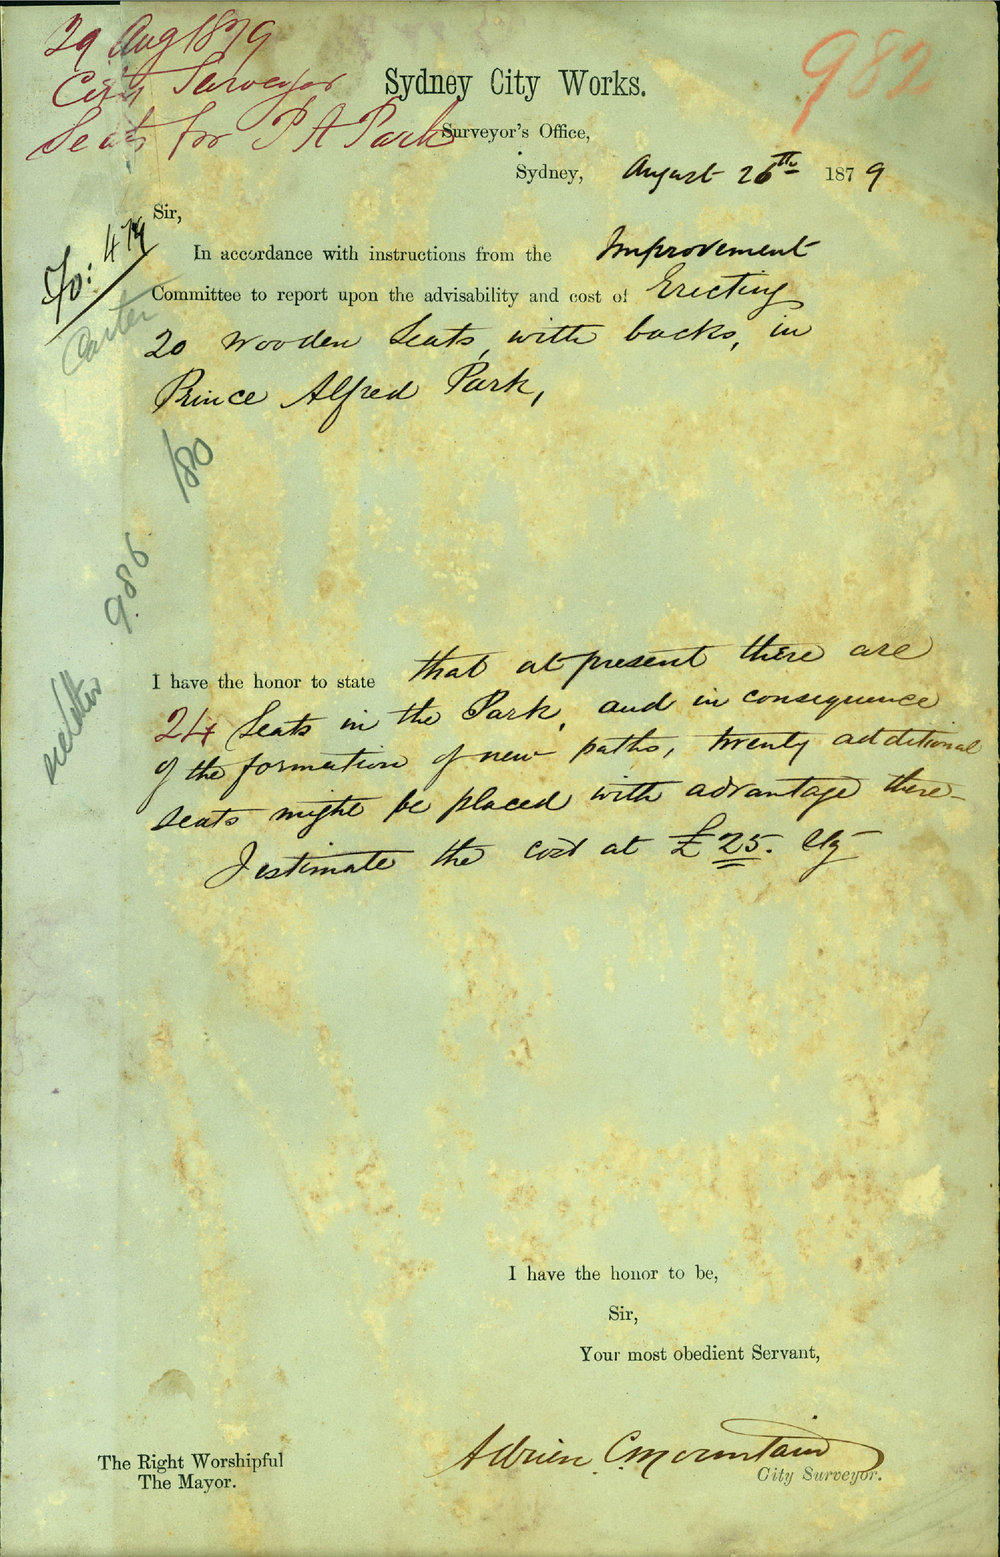 29 Aug 1879
City Surveyor
Seats for P A Park
982
Sydney City Works.
Surveyor's Office,
Sydney, August 26th 1879
Fo: 479
Carter
Sir,
In accordance with instructions from the Improvement
Committee to report upon the advisability and cost of Erecting
20 wooden Seats, with backs, in
Prince Alfred Park,
180
986
I have the honor to state that at present there are
24 Seats in the Park, and in consequence
of the formation of new paths, twenty additional
seats might be placed with advantage there-
I estimate the cost at £25.
I have the honor to be,
Sir,
Your most obedient Servant,
Adrien C. Mountain
City Surveyor.
The Right Worshipful
The Mayor.